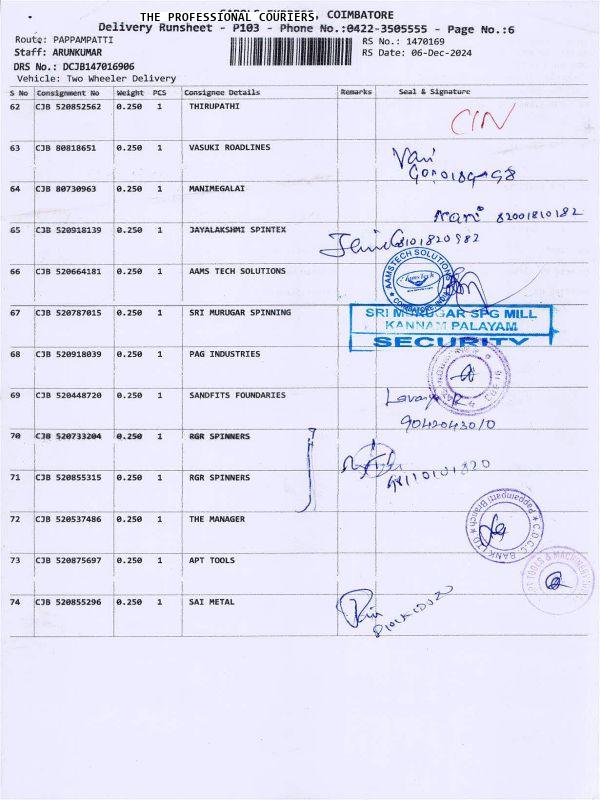 THE PROFESSIONAL COURIERS, COIMBATORE
Delivery Runsheet - P103 - Phone No.:0422-3505555 - Page No.:6
Route: PAPPAMPATTI RS No.: 1470169
Staff: ARUNKUMAR RS Date: 06-Dec-2024
DRS No.: DCJB147016906
Vehicle: Two Wheeler Delivery
S No Consignment No Weight PCS Consignee Details Remarks Seal & Signature
62 CJB 520852562 0.250 1 THIRUPATHI
CIN
63 CJB 80818651 0.250 1 VASUKI ROADLINES
64 CJB 80730963 0.250 1 MANIMEGALAI
Mani 82001810182
65 CJB 520918139 0.250 1 JAYALAKSHMI SPINTEX
66 CJB 520664181 0.250 1 AAMS TECH SOLUTIONS
AAMS TECH SOLUTIONS
67 CJB 520787015 0.250 1 SRI MURUGAR SPINNING
SRI MURUGAR SPG MILL
KANNAM PALAYAM
SECURITY
68 CJB 520918039 0.250 1 PAG INDUSTRIES
69 CJB 520448720 0.250 1 SANDFITS FOUNDARIES
70 CJB 520733204 0.250 1 RGR SPINNERS
71 CJB 520855315 0.250 1 RGR SPINNERS
72 CJB 520537486 0.250 1 THE MANAGER
C.D.C.C. BANK LTD
Pappampatti Branch
73 CJB 520875697 0.250 1 APT TOOLS
74 CJB 520855296 0.250 1 SAI METAL